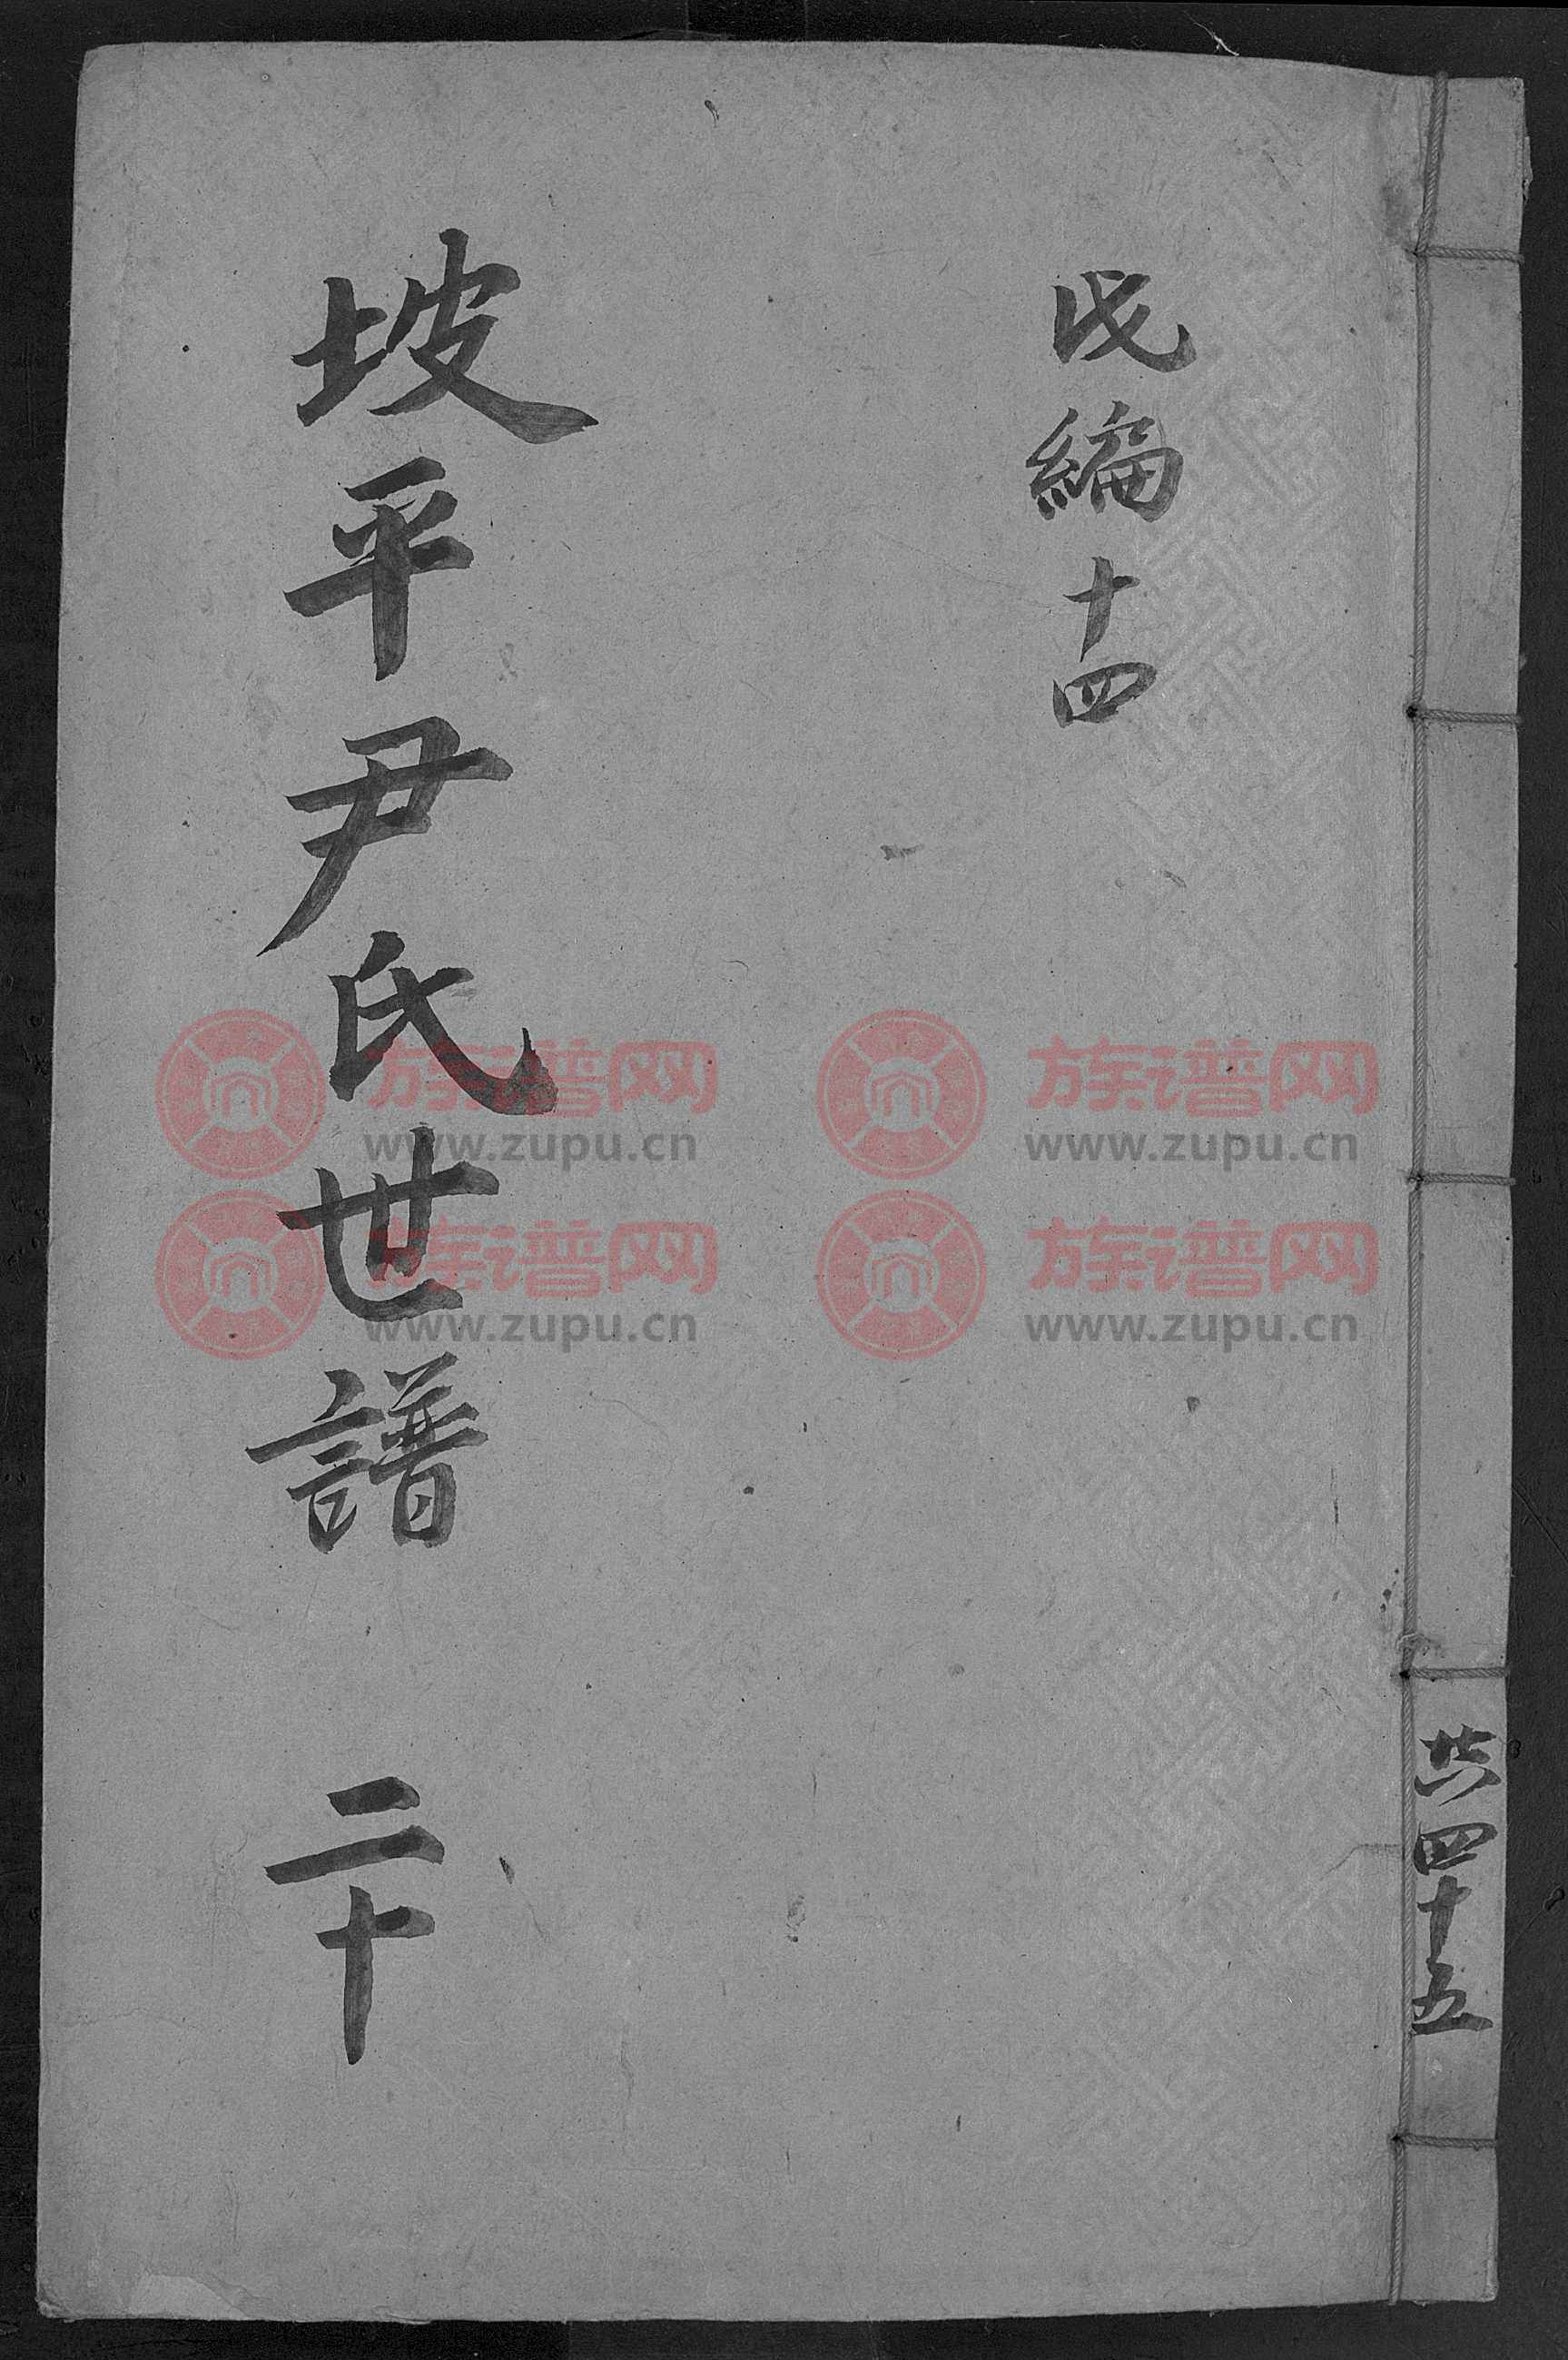 共四十五
編十四
坡平尹氏世譜 二十
族谱网
www.zupu.cn
族谱网
www.zupu.cn
族谱网
www.zupu.cn
族谱网
www.zupu.cn